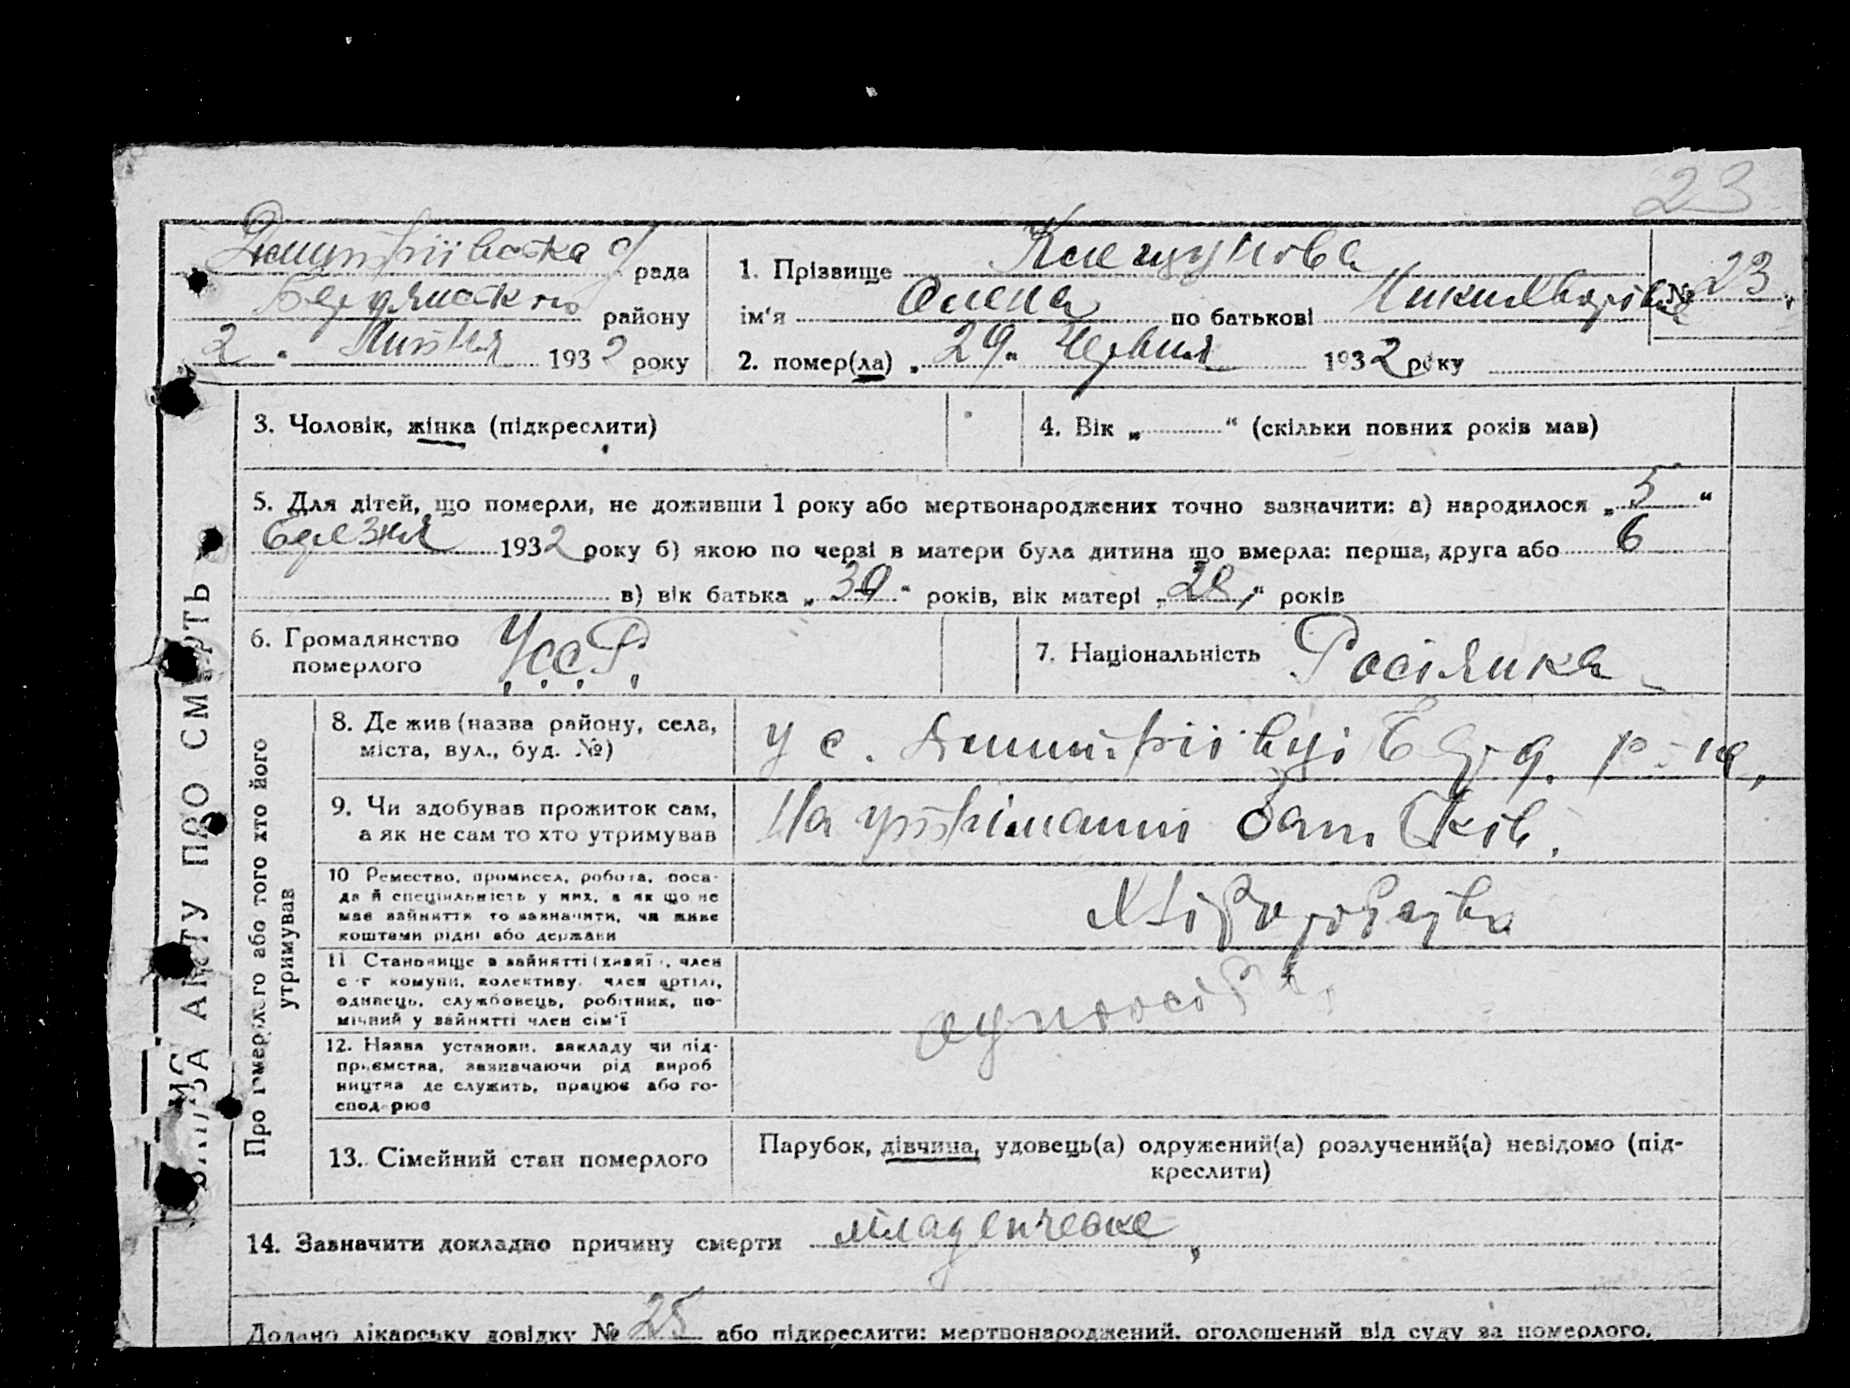 23
Дмитріївська с/рада
Бердянського району
2 " Липня 1932 року
1. Прізвище
ім'я Олена по батькові
№ 23
2. помер(ла) „ 29 " Червня 1932 року
3. Чоловік, жінка (підкреслити)
4. Вік „ " (скільки повних років мав)
5. Для дітей, що померли, не доживши 1 року або мертвонароджених точно зазначити: а) народилося „ 5 "
березня 1932 року б) якою по черзі в матери була дитина що вмерла: перша, друга або 6
в) вік батька „ 39 " років, вік матері „ 28 " років
6. Громадянство
померлого
УССР.
7. Національність Росіянка
ВАПИС ЗА АКТУ ПРО СМЕРТЬ
Про померлого або того хто його
утримував
8. Де жив (назва району, села,
міста, вул., буд. №)
у с. Дмитріївці Берд. р-на,
9. Чи здобував прожиток сам,
а як не сам то хто утримував
На утріманні батьків.
10 Ремество, промисел, робота, поса-
да й спеціяльність у них, а як що не
мав зайняття то зазначити, чи живе
коштами рідні або держави
Хліборобство
11 Становище в зайнятті (хазяї , член
с-г комуни, колективу, член артілі,
одинець, службовець, робітник, по-
мічний у зайнятті член сім'ї
12. Назва установи, закладу чи під-
приємства, зазначаючи рід вироб
ництва де служить, працює або го-
сподарює
13. Сімейний стан померлого
Парубок, дівчина, удовець(а) одружений(а) розлучений(а) невідомо (під-
креслити)
14. Зазначити докладно причину смерти младенческе,
Додано лікарську довідку № 25 або підкреслити: мертвонароджений, оголошений від суду за померлого.